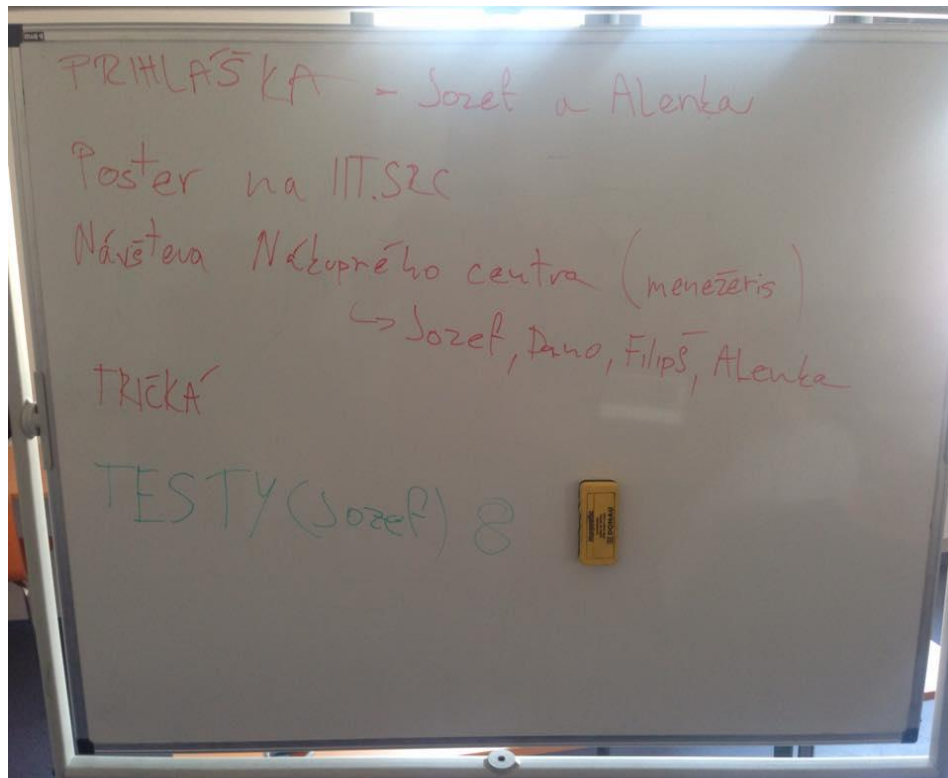 PRIHLÁŠKA - Jozef a Alenka
Poster na IIT.SRC
Návšteva Nákupného centra (menežéris)
↳ Jozef, Dano, Filip, Alenka
TRIČKÁ
TESTY (Jozef) 8